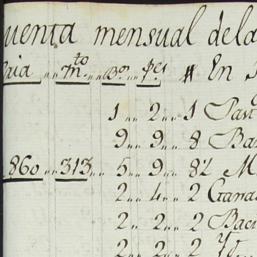 uenta mensual dela
ria .. Mto .. Bos .. Pes # En
1 .. 2 .. 1 Past
9 .. 9 .. 8 Ba
860 .. 313 .. 5 .. 9 .. 82 M
2 .. 4 .. 2 Cana
2 .. 2 .. 2 Bac
2 .. 2 .. 2